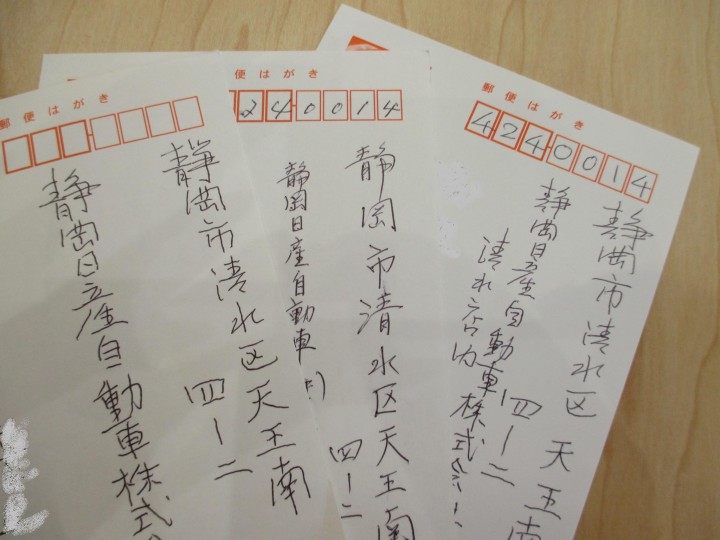 郵便はがき
4240014
静岡市清水区天王南
四ー二
静岡日産自動車株式会
清水店内
便はがき
240014
静岡市清水区天王南
四ー二
静岡日産自動車
郵便はがき
静岡市清水区天王南
四ー二
静岡日産自動車株式